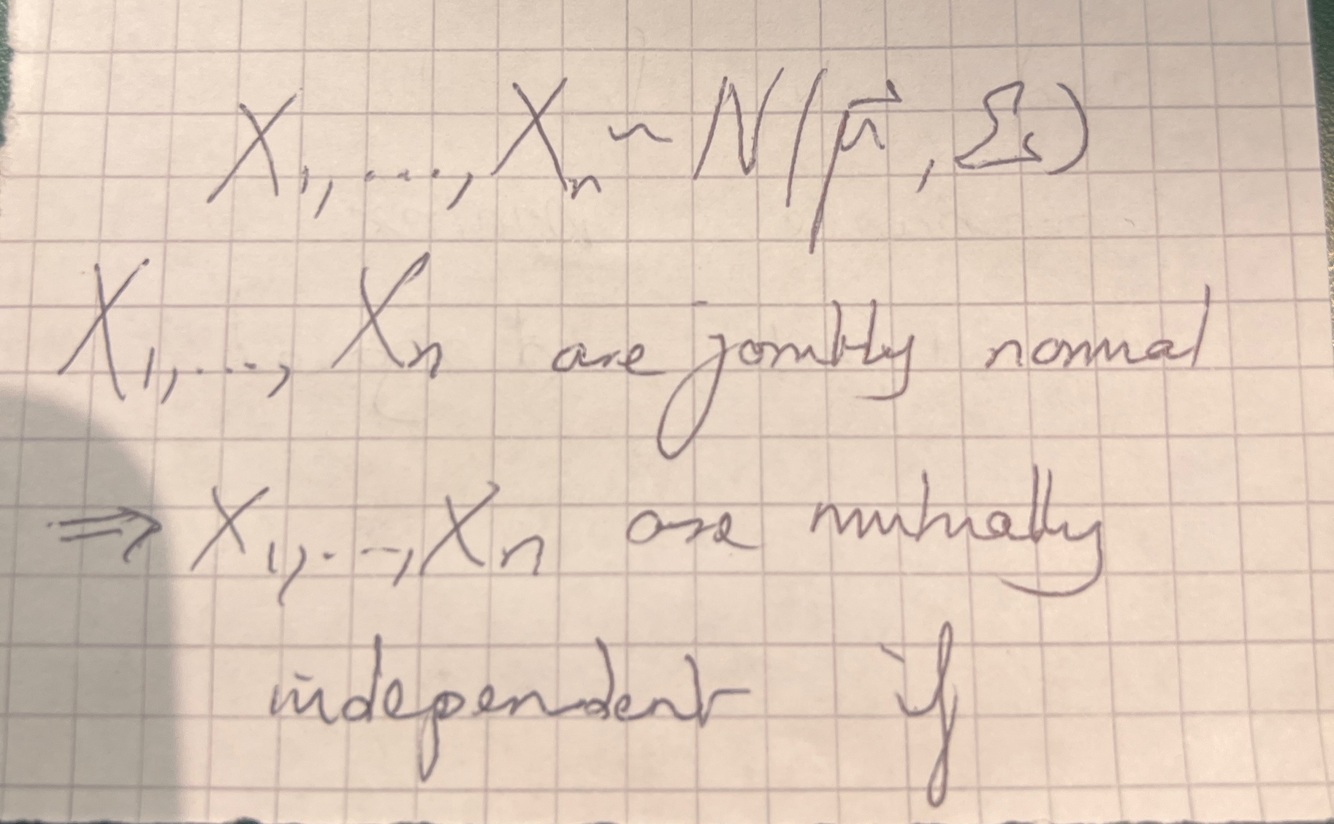 X₁, ..., Xₙ ~ N(μ⃗, Σ)
X₁, ..., Xₙ are jointly normal
⇒ X₁, ..., Xₙ are mutually
independent if